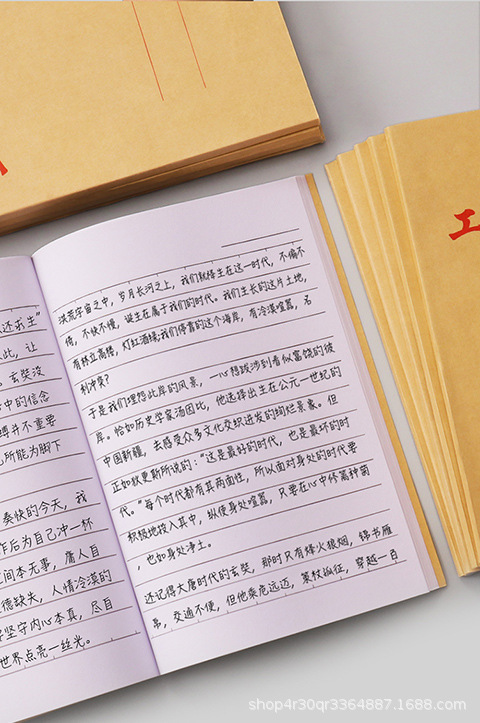 工
还求生"
此，让
玄奘没
中的信念
缚并不重要
所能为脚下
奏快的今天，我
作后为自己冲一杯
间本无事，庸人自
德缺失，人情冷漠的
坚守内心本真，尽自
世界点亮一丝光。
洪荒宇宙之中，岁月长河之上，我们就将生在这一时代，不偏不
倚，不快不慢，诞生在属于我们的时代。我们生长的这片土地，
有林立高楼，灯红酒绿；我们停靠的这个海岸，有冷漠喧嚣，名
利冲突？
于是我们埋怨此岸的风景，一心想跋涉到看似富饶的彼
岸。恰如历史学家汤因比，他选择出生在公元一世纪的
中国新疆，去感受众多文化交织迸发的绚烂景象。但
正如狄更斯所说的："这是最好的时代，也是最坏的时
代。"每个时代都有其两面性，所以面对身处的时代要
积极地投入其中，纵使身处喧嚣，只要在心中修篱种菊
，也如身处净土。
还记得大唐时代的玄奘，那时只有烽火狼烟，锦书雁
帛，交通不便，但他乘危远迈，策杖孤征，穿越一百
shop4r30qr3364887.1688.com